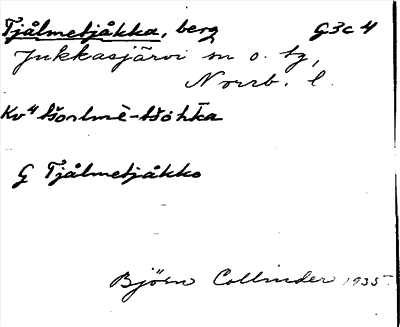 Tjålmetjåkka, berg G3c4
Jukkasjärvi sn o. tg,
Norrb. l.
G Tjålmetjåkko
Björn Collinder 1935